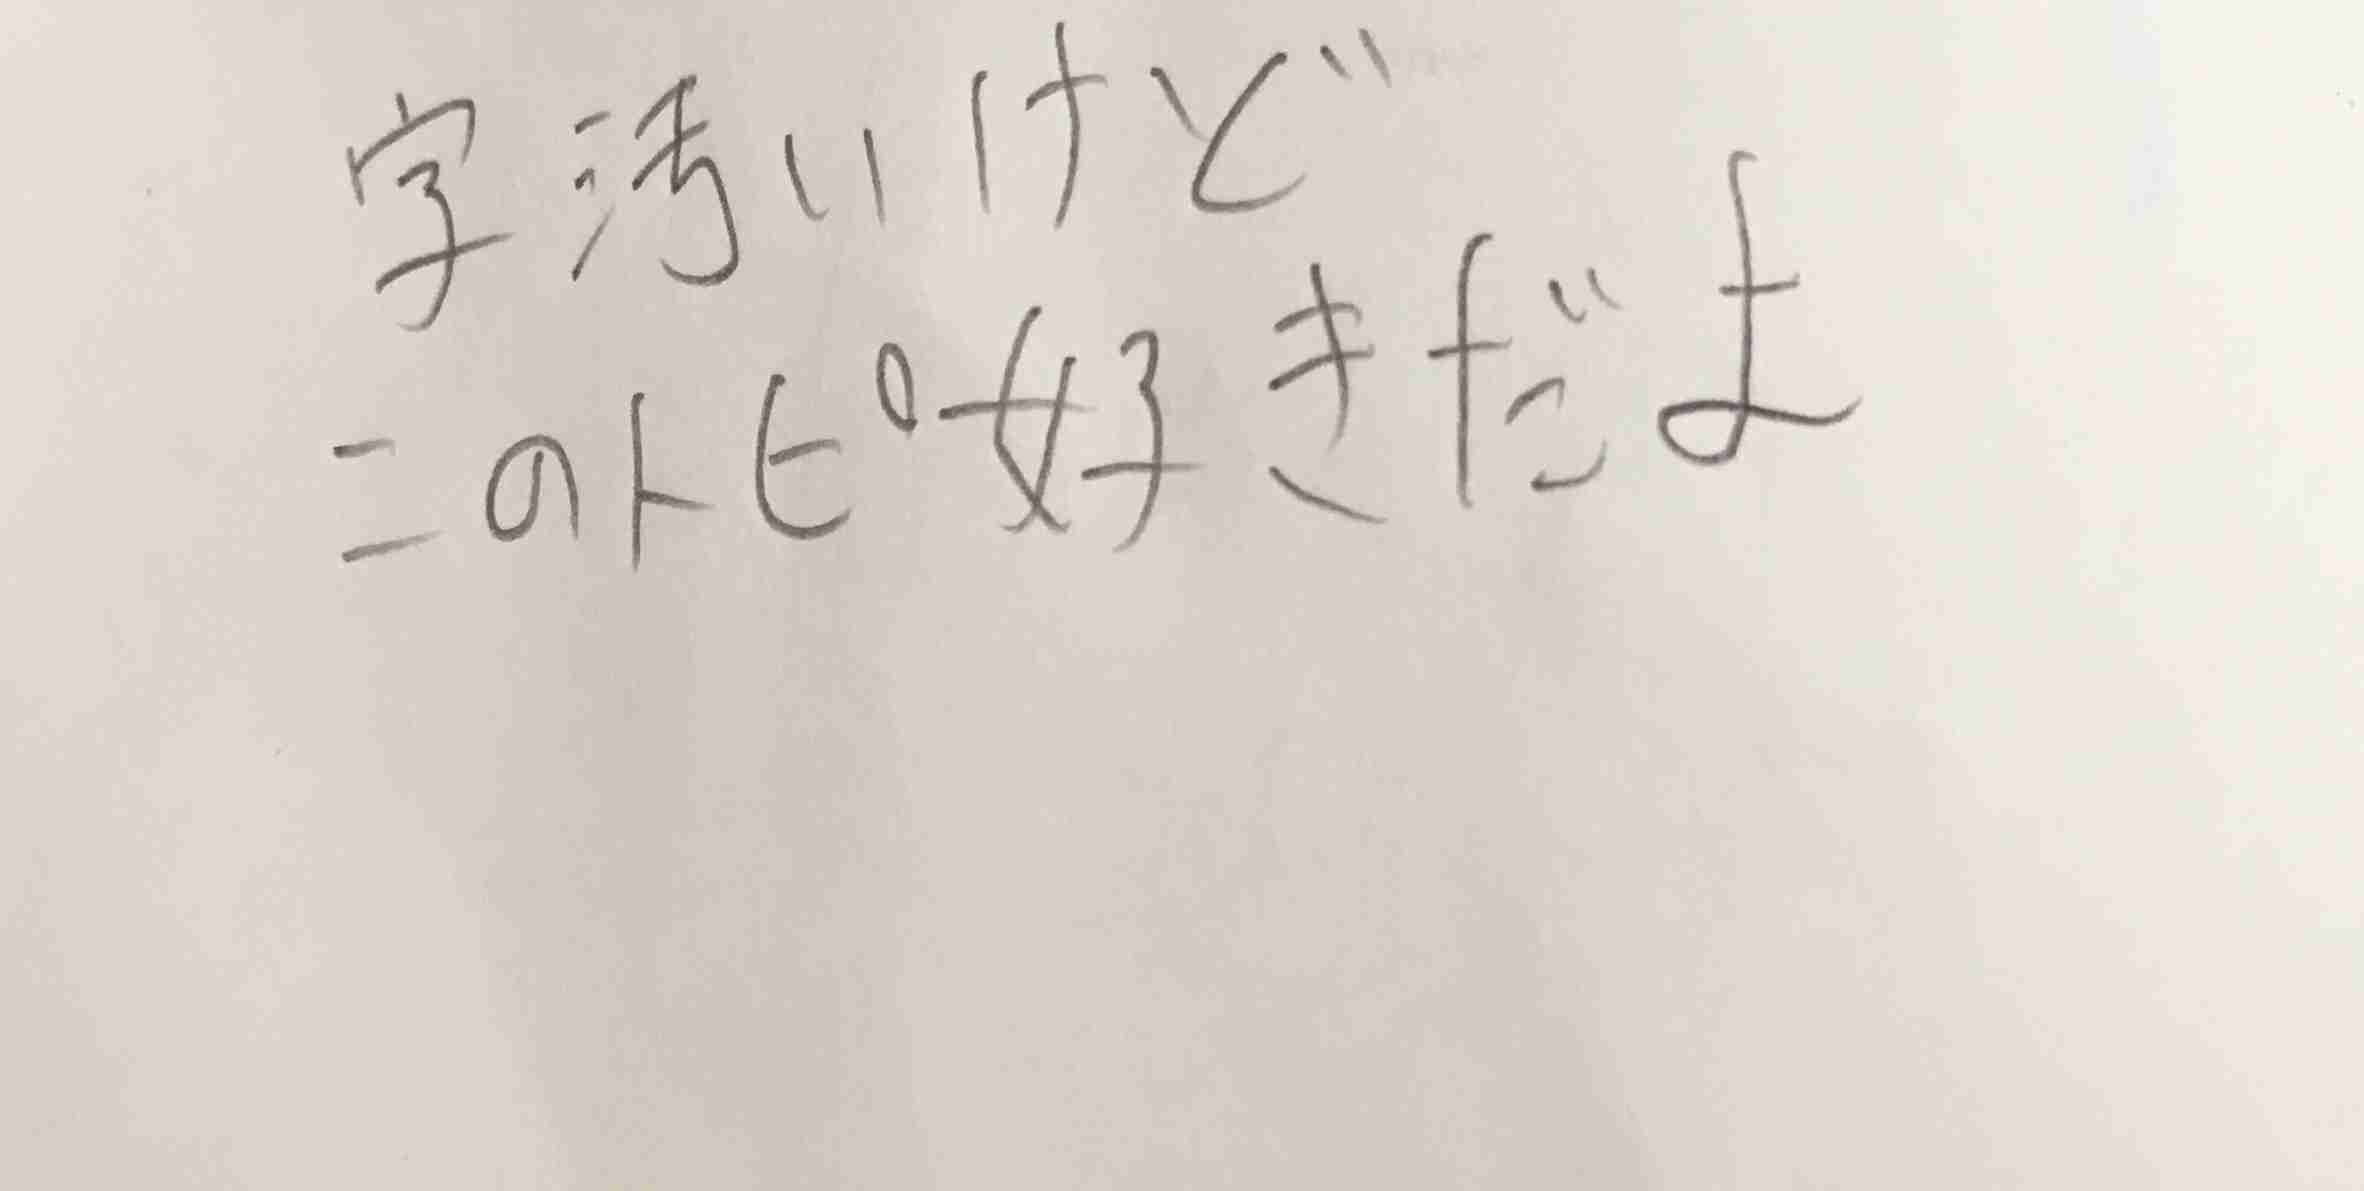 字汚いけど
このトピ好きだよ